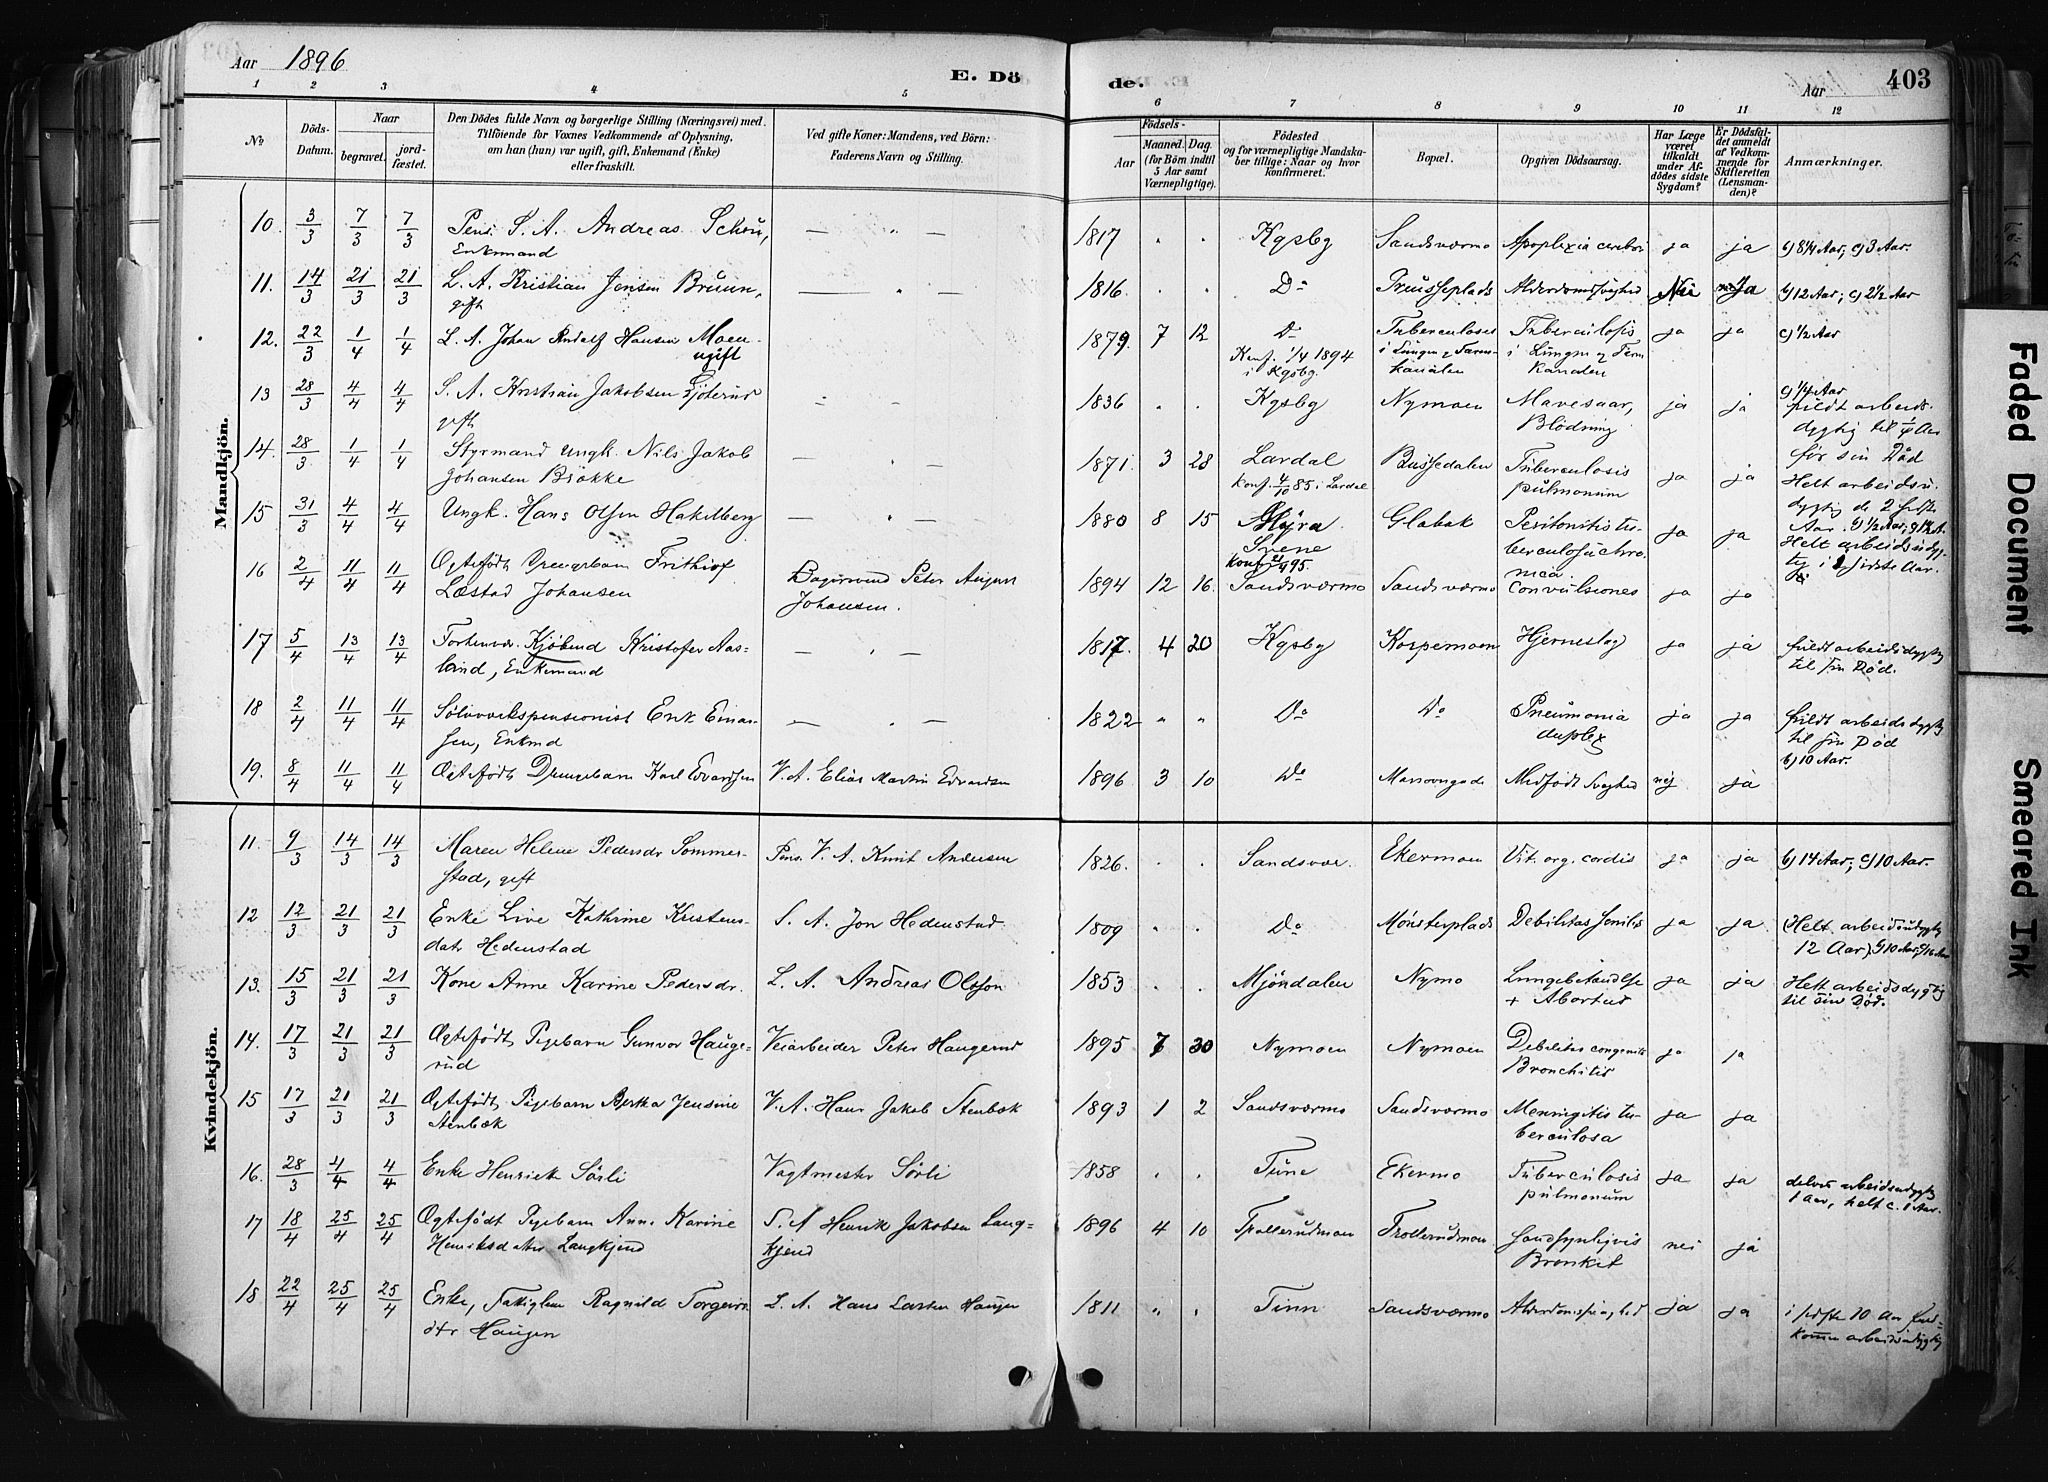 Aar 1896
E. Dö
de.
Aar
403
1 2 3 4 5 6 7 8 9 10 11 12
No
Döds-Datum.
Naar
begravet.
jord-fæstet.
Den Dödes fulde Navn og borgerlige Stilling (Næringsvei) med.
Tilföiende for Voxnes Vedkommende af Oplysning,
om han (hun) var ugift, gift, Enkemand (Enke)
eller fraskilt.
Ved gifte Koner: Mandens, ved Börn:
Faderens Navn og Stilling.
Födsels-
Aar
Maaned. Dag.
(for Börn indtil
5 Aar samt
Værnepligtige).
Födested
og for værnepligtige Mandska-
ber tillige: Naar og hvor
konfirmeret.
Bopæl.
Opgiven Dödsaarsag.
Har Læge
været
tilkaldt
under Af-
dödes sidste
Sygdom?
Er Dödsfal-
det anmeldt
af Vedkom-
mende for
Skifteretten
(Lensman-
den)?
Anmærkninger.
Mandkjön.
10. 3/3 7/3 7/3 Pens. S. A. Andreas Schou, — " — 1817 " " Kgsbg Sandsværmo Apoplexia cerebri ja ja b) 8 1/4 Aar; c) 3 Aar.
Enkemand
11. 14/3 21/3 21/3 L. A. Kristian Jensen Bruun, — " — 1816. " " Do Preusseplads Alderdomssvaghed Nei Ja b) 12 Aar; c) 2 1/2 Aar
gift
12. 22/3 1/4 1/4 L. A. Johan Rudolf Hansen Moen 1879. 7 12 Do Tuberculosis Tuberculosis ja ja c) 1/2 Aar
ugift Konf. 1/4 1894 i Lungen & Tarm- i Lungen & Tarm
i Kgsbg. kanalen kanalen
13 28/3 4/4 4/4 S. A. Kristian Jakobsen 1836 " " Kgsbg Nymoen Mavesaar, ja ja c) 1/4 Aar
gift Blödning fuldt arbeids-
dygtig til 1/4 Aar
før sin Død
14. 28/3 1/4 1/4 Styrmand Ungk. Nils Jakob — " — 1871. 3 28 Lardal Bussedalen Tuberculosis ja ja
Johansen Brøkke Konf. 4/10 85 i Lardal pulmonum Helt arbeidsu-
15 31/3 4/4 4/4 Ungk. Hans Olsen Hakelberg — " — 1880 8 15 Myra Glabak Peritonitis tu- ja ja dygtig de 2 sidste
Svene berculosa chro- Aar.
Konf. 95 nica. Helt arbeidsudyg-
tig i sidste Aar.
16 2/4 11/4 11/4 Ægtefødt Drengebarn Frithiof Bøgersvend Peter August 1894 12 16. Sandsværmo Sandsværmo Convulsiones ja ja
Læstad Johansen Johansen.
17 5/4 13/4 13/4 Forhenvær. Kjöbmd Kristofer Aas- — " — 1817. 4 20 Kgsbg Korpemoen Hjerneslag ja ja fuldt arbeidsdygtig
land, Enkemand til sin Død.
18 2/4 11/4 11/4 Sølvverkspensionist Erik Einar- — " — 1822 " " Do Do Pneumonia ja ja fuldt arbeidsdygtig
sen, Enkmd duplex til sin Død
b) 10 Aar.
19. 8/4 11/4 11/4 Ægtefødt Drengebarn Karl Edvardsen V. A. Elias Martin Edvardsen 1896 3 10 Do Medfødt Svaghed nej ja
Kvindekjön.
11. 9/3 14/3 14/3 Maren Helene Pedersdr Sommer- Pens. V. A. Knut Andersen 1826. " " Sandsvær. Ekermoen Vit. org. cordis ja ja b) 14 Aar; c) 10 Aar.
stad, gift
12 12/3 21/3 21/3 Enke Live Kathrine Kristens- S. A. Jon Hedenstad 1809 " " Do Mønsterplads Debilitas senilis ja ja (Helt arbeidsudygtig
datr Hedenstad 12 Aar).
13. 15/3 21/3 21/3 Kone Anne Karine Pedersdr. L. A. Andreas Olsson 1853 " " Mjöndalen Nymo Lungebetændelse ja ja Helt arbeidsdygtig
+ Abortus til sin Død.
14. 17/3 21/3 21/3 Ægtefødt Pigebarn Gunvor Hauge- Veiarbeider Peter Haugerud 1895 7 30 Nymoen Nymoen Debilitas congenita ja ja
rud Bronchitis
15 17/3 21/3 21/3 Ægtefødt Pigebarn Bertha Jensine V. A. Hans Jakob Stenbæk 1893 1 2 Sandsværmo Sandsværmo Meningitis tu- ja ja
Stenbæk berculosa
16. 28/3 4/4 4/4 Enke Henriette Sörli Vagtmester Sörli 1858 " " Tune Ekermo Tuberculosis ja ja delvis arbeidsudygtig
pulmonum 1 Aar, helt c. 1 Aar.
17 18/4 25/4 25/4 Ægtefødt Pigebarn Anne Karine S. A Henrik Jakobsen Lang- 1896 4 10 Trollerudmoen Trollerudmoen Sandsynligvis nei ja
Henriksdatter Langkjend kjend Bronkit
18 22/4 25/4 25/4 Enke, Fattiglem Ragnild Torgeirs- L. A. Hans Larsen Haugen 1811 " " Tinn Sandsværmo Alderdomssvaghed ja ja i sidste 10 Aar fuld-
dtr Haugen kommen arbeidsudygtig
Faded Document
Smeared Ink